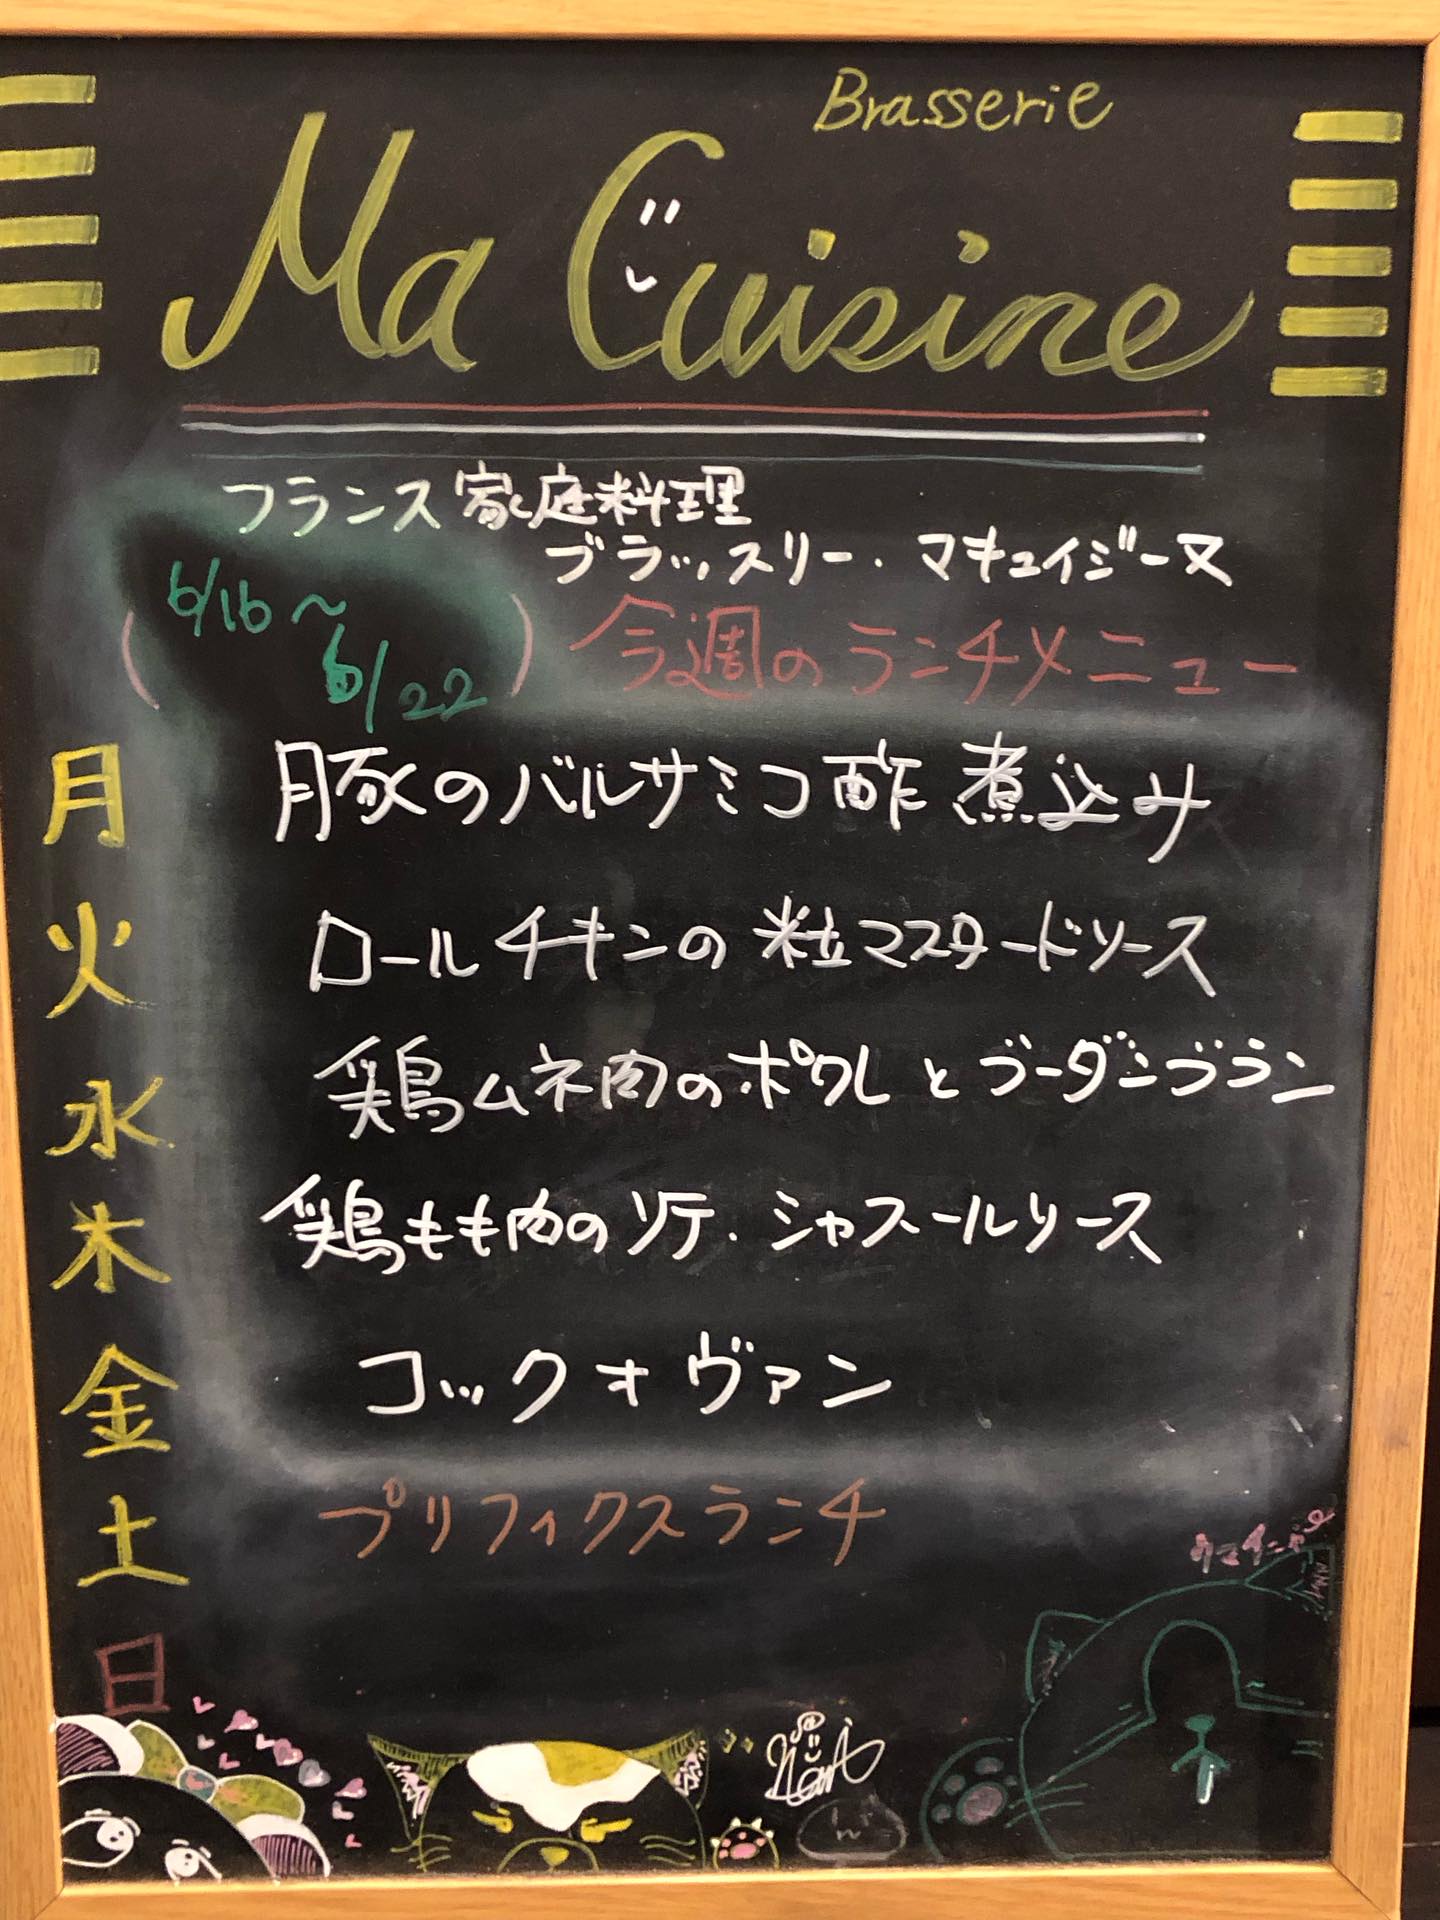 Brasserie
Ma Cuisine
フランス家庭料理
ブラッスリー・マキュイジーヌ
(6/16～6/22) 今週のランチメニュー
月 豚のバルサミコ酢煮込み
火 ロールチキンの粒マスタードソース
水 鶏ムネ肉のポワレとブーダンブラン
木 鶏もも肉のソテー・シャスールソース
金 コックオヴァン
土 プリフィクスランチ
日